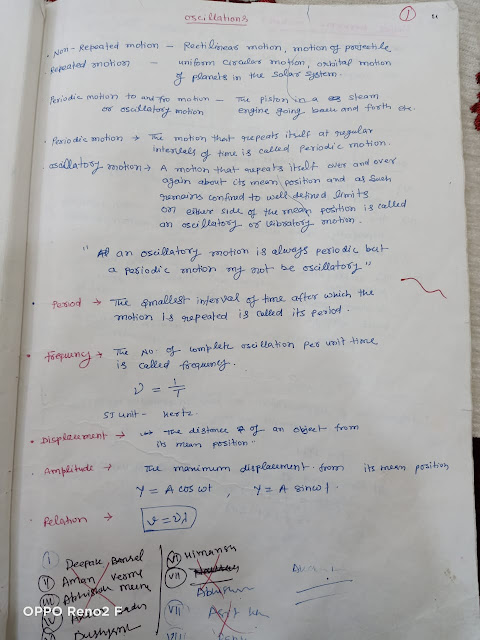 oscillations
1
Non-Repeated motion - Rectilinear motion, motion of projectile
Repeated motion - uniform circular motion, orbital motion
of planets in the solar system.
Periodic motion to and fro motion - The piston in a steam
or oscillatory motion engine going back and forth etc.
Periodic motion → The motion that repeats itself at regular
intervals of time is called periodic motion.
oscillatory motion → A motion that repeats itself over and over
again about its mean position and as such
remains confined to well defined limits
on either side of the mean position is called
an oscillatory or vibratory motion.
" an oscillatory motion is always periodic but
a periodic motion my not be oscillatory"
Period → The smallest interval of time after which the
motion is repeated is called its period.
frequency → The no. of complete oscillation per unit time
is called frequency.
ν = 1/T
SI unit - hertz.
Displacement → The distance of an object from
its mean position"
Amplitude → The maximum displacement from its mean position
Y = A cos wt , Y = A sin wt.
Relation → v = νλ
I Deepak Bansal
II Aman Verma
III Abhishek Meena
IV
VI Himansh
VII
Abhishek
VII
VIII
OPPO Reno2 F